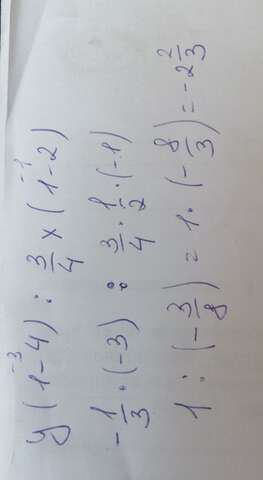 -3 -1
y(1-4) : 3/4 x (1-2)
-1/3 · (-3) : 3/4 · 1/2 · (-1)
1 : (-3/8) = 1 · (-8/3) = -2 2/3